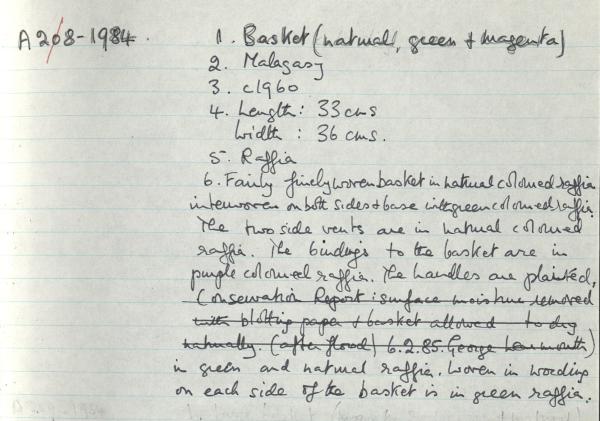 A208-1984.
1. Basket (natural, green + magenta)
2. Malagasy
3. c1960
4. Length: 33cms
Width : 36 cms.
5. Raffia
6. Fairly finely woven basket in natural coloured raffia
interwoven on both sides + base with green coloured raffia.
The two side vents are in natural coloured
raffia. The bindings to the basket are in
purple coloured raffia. The handles are plaited,
(Conservation Report: surface moisture removed
with blotting paper + basket allowed to dry
naturally. (after flood) 6.2.85. George)
in green and natural raffia. Woven in wording
on each side of the basket is in green raffia.